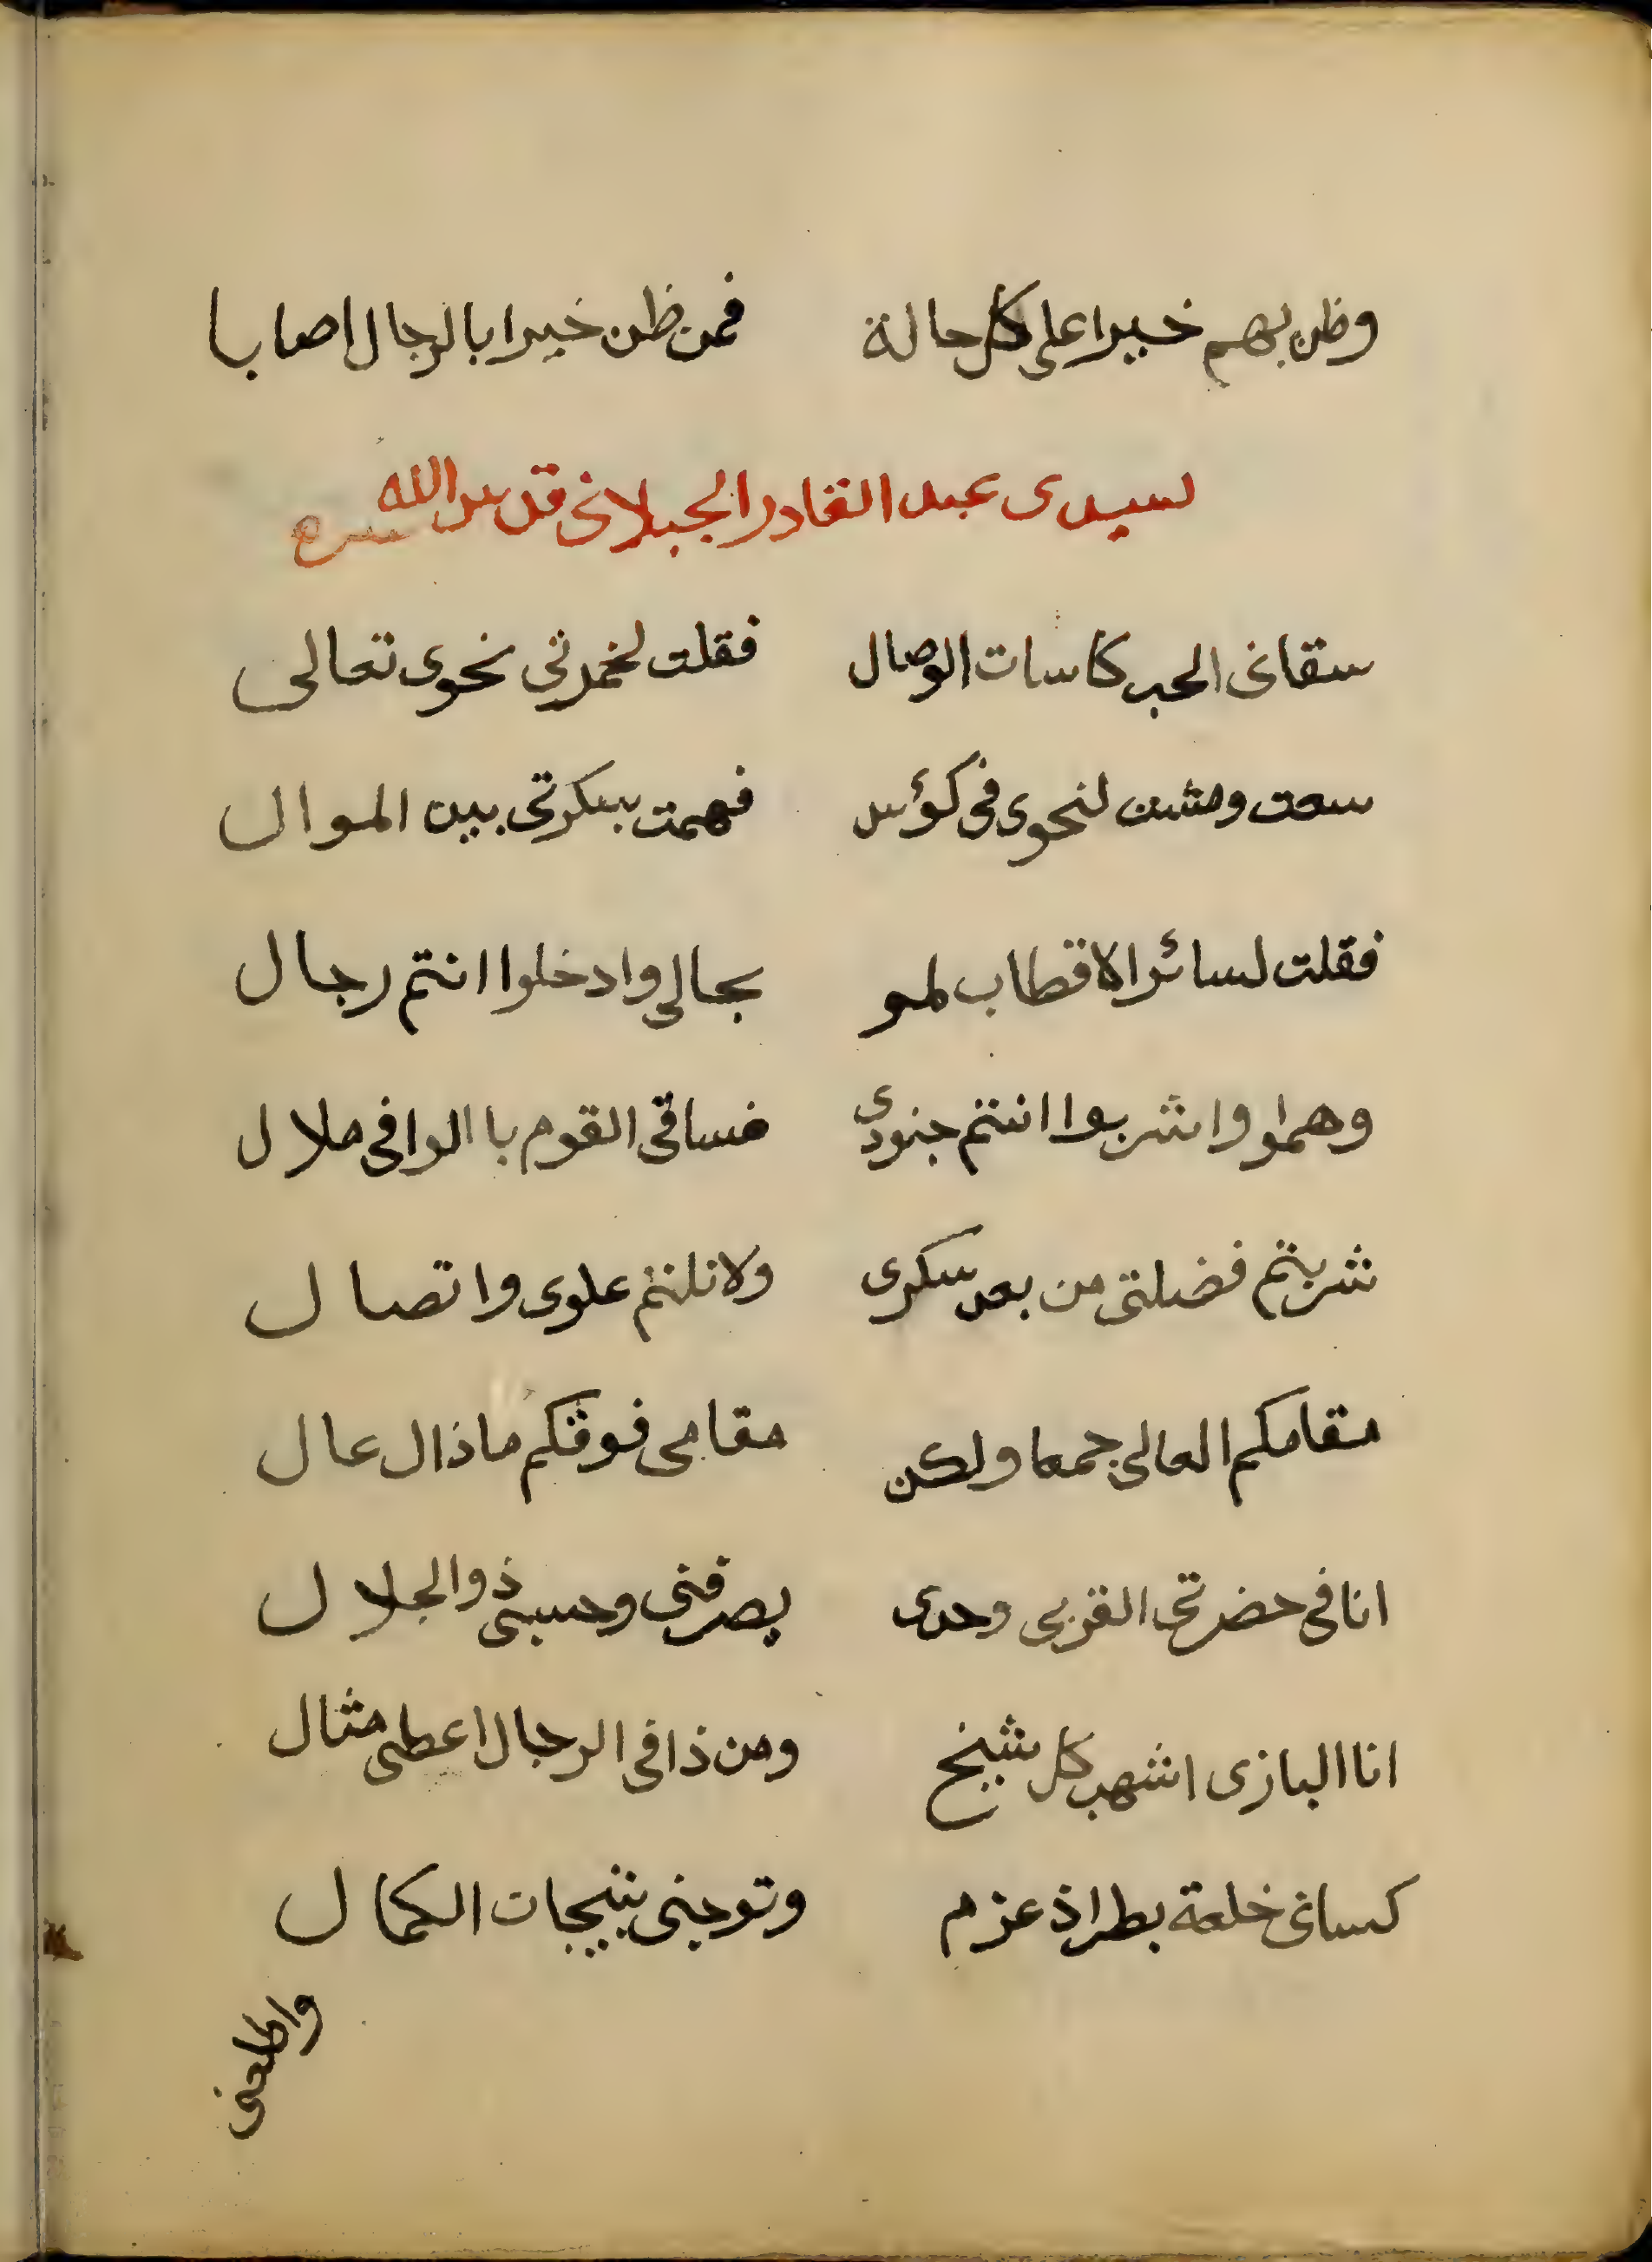 وظن بهم خيرا على كل حالة فمن ظن خيرا بالرجال اصابا
لسيدى عبد القادر الجيلانى قدس الله سره
سقانى الحب كاسات الوصال فقلت لخمرتى نحوى تعالى
سعت ومشت لنحوى فى كؤس فهمت بسكرتى بين الموال
فقلت لسائر الاقطاب لمو بحالى وادخلوا انتم رجال
وهموا واشربوا انتم جنودى فساقى القوم با الوافى ملال
شربتم فضلتى من بعد سكرى ولا نلتم علوى واتصال
مقامكم العالى جمعا ولكن مقامى فوقكم ماذال عال
انا فى حضرتى القربى وحدى يصرفنى وحسبى ذو الجلال
انا البازى اشهب كل شيخ ومن ذا فى الرجال اعطى مثال
كسانى خلعة بطراذ عزم وتوجنى بتيجان الكمال
واطلعنى